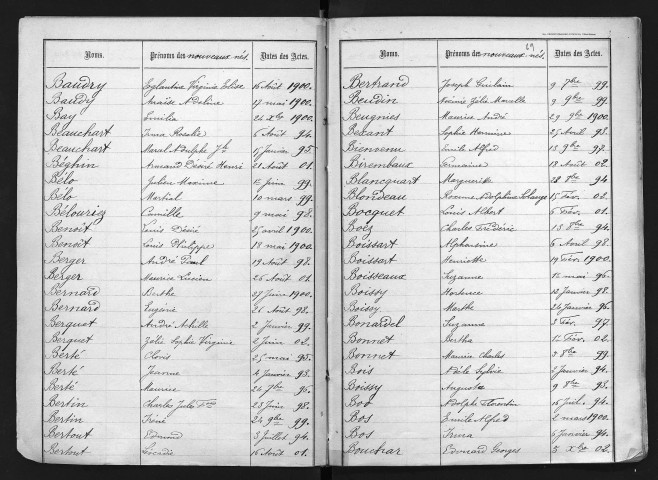 Noms. Prénoms des nouveaux nés. Dates des Actes.
Baudry Eglantine Virginie Elise 16 Août 1900.
Baudy Anaïse Adeline 17 mai 1900.
Bay Emilia 24 Xbre 1900.
Beauchart Irma Rosalie 6 Août 94.
Beauchart Marcel Adolphe Jh 15 Janvier 95.
Béghin Armand Désiré Henri 21 Août 01.
Bélo Julien Maxime 12 Juin 99.
Bélo Martial 10 mars 99.
Bélouriez Camille 9 mai 98.
Benoit Louis Désiré 25 avril 1900.
Benoit Louis Philippe 18 mai 1900.
Berger André Paul 19 Août 98.
Berger Maurice Lucien 26 Août 01.
Bernard Berthe 29 Juin 1900.
Bernard Eugène 26 Août 98.
Berquet André Achille 2 Janvier 99.
Berquet Zélie Sophie Virginie 2 Juin 02.
Berté Clovis 25 mai 95.
Berté Jeanne 4 Janvier 93.
Berté Maurice 24 7bre 96.
Bertin Charles Jules 23 Juin 98.
Bertin Irène 24 9bre 99.
Bertout Edmond 3 Juillet 94.
Bertout Léocadie 16 Août 01.
69
Noms. Prénoms des nouveaux nés. Dates des Actes.
Bertrand Joseph Guslain 9 7bre 99.
Beudin Noémie Zélie Marcelle 9 9bre 99.
Beugnies Maurice André 29 9bre 1900.
Bexant Sophie Hermine 25 Avril 98.
Bienvenu Emile Alfred 13 9bre 97.
Birembaux Germaine 18 Août 02.
Blancquart Marguerite 28 8bre 94
Blondeau Adolphina Solange 15 Fév. 02.
Bocquet Louis Albert 6 Fév. 01.
Boez Charles Frédéric 15 8bre 94.
Boissart Alphonsine 6 Avril 98.
Boissart Henriette 19 Fév. 1900.
Boisseaux Suzanne 12 mai 96.
Boissy Hortence 12 Janvier 98.
Boissy Marthe 24 Janvier 96.
Bonardel Suzanne 3 Fév. 97.
Bonnet Bertha 12 Fév. 02.
Bonnet Maurice Charles 3 8bre 99.
Bois Adèle Sylvie 2 Janvier 94.
Boissy Auguste 9 8bre 93.
Bos Adolphe Florentin 16 Juil. 94.
Bos Emile Alfred 2 mars 1900.
Bos Irma 6 Janvier 94.
Bouchar Edouard Georges 5 Xbre 02.